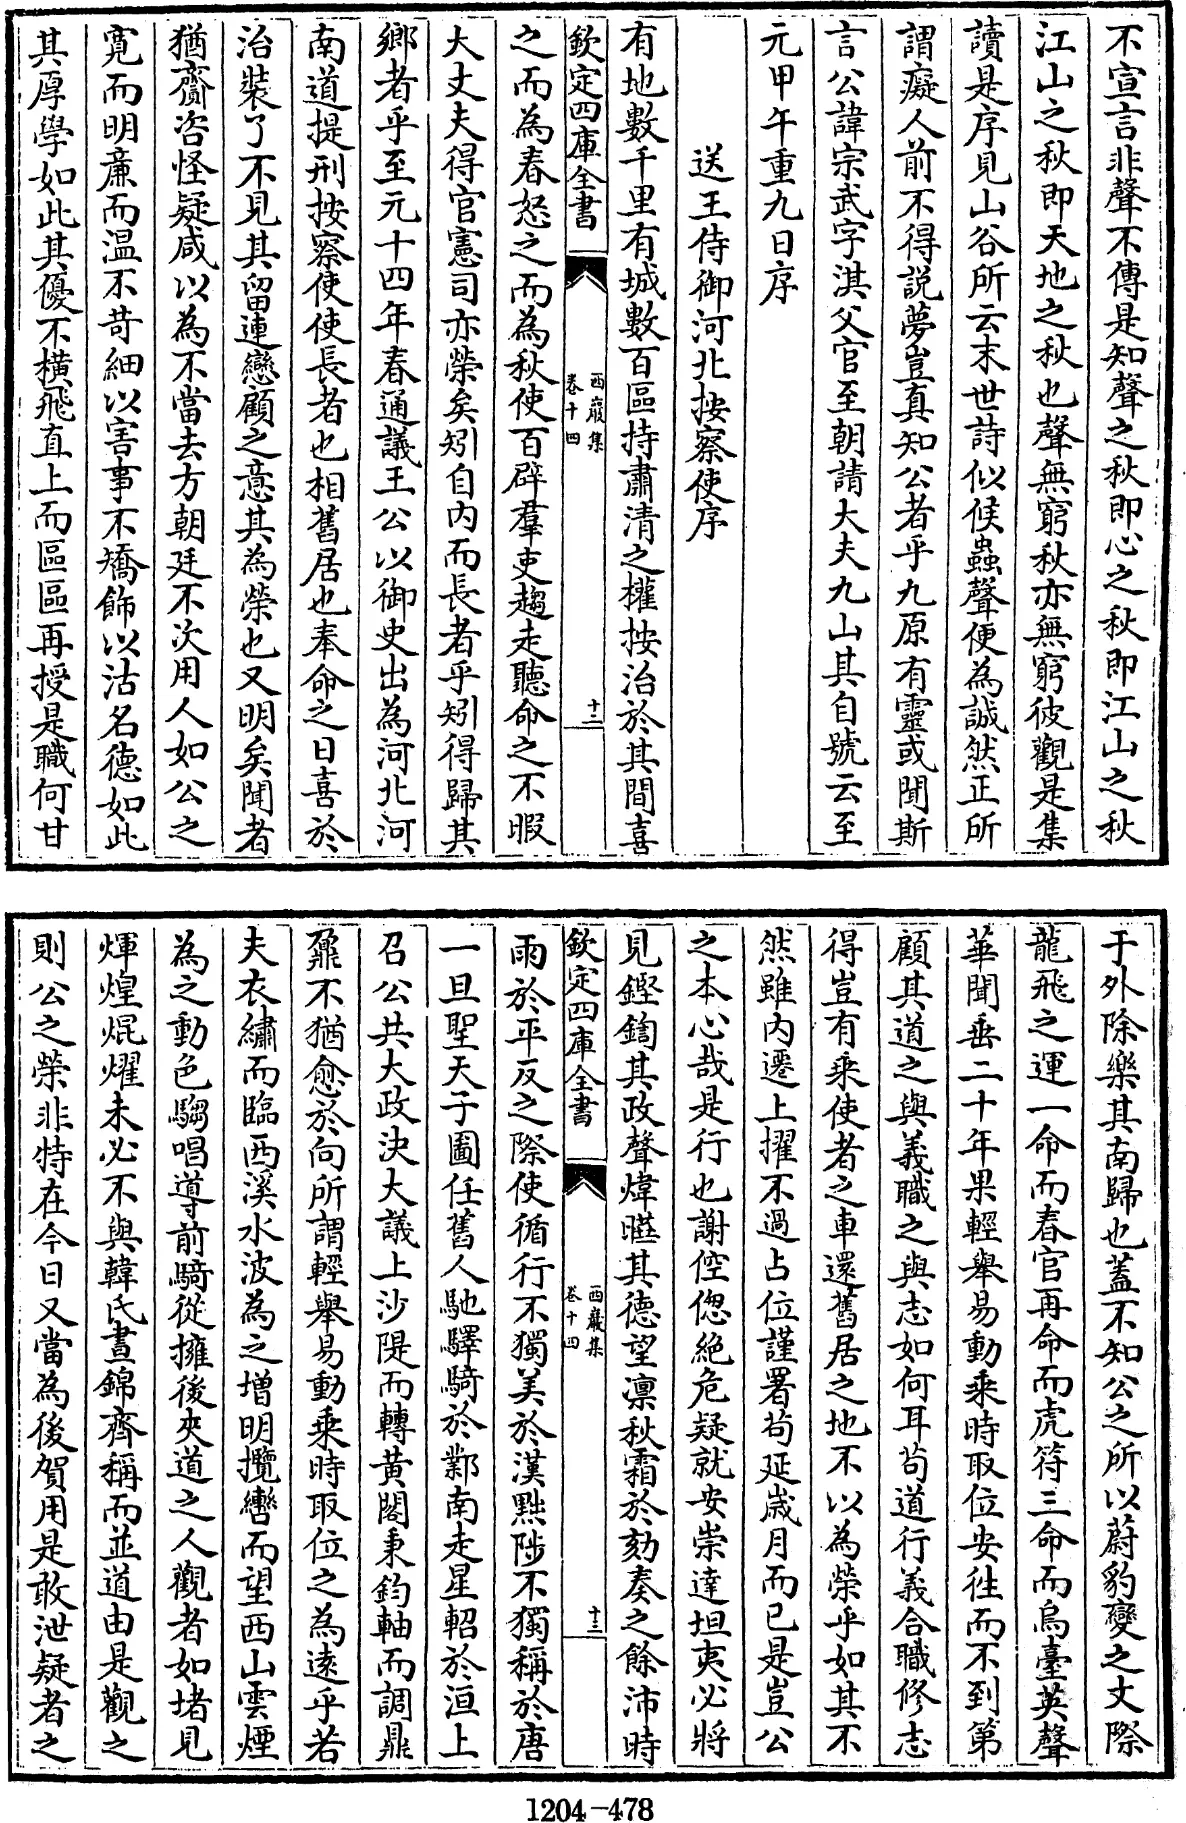 不宣言非聲不傳是知聲之秋即心之秋即江山之秋
江山之秋即天地之秋也聲無窮秋亦無窮彼觀是集
讀是序見山谷所云末世詩似候蟲聲便為誠然正所
謂癡人前不得説夢豈真知公者乎九原有靈或聞斯
言公諱宗武字淇父官至朝請大夫九山其自號云至
元甲午重九日序
送王侍御河北按察使序
有地數千里有城數百區持肅清之權按治於其間喜
欽定四庫全書
西巖集
卷十四
十二
之而為春怒之而為秋使百辟羣吏趨走聽命之不暇
大丈夫得官憲司亦榮矣矧自内而長者乎矧得歸其
鄉者乎至元十四年春通議王公以御史出為河北河
南道提刑按察使使長者也相舊居也奉命之日喜於
治裝了不見其留連戀顧之意其為榮也又明矣聞者
猶齎咨怪疑咸以為不當去方朝廷不次用人如公之
寛而明亷而温不苛細以害事不矯飾以沽名德如此
其厚學如此其優不横飛直上而區區再授是職何甘
于外除樂其南歸也蓋不知公之所以蔚豹變之文際
龍飛之運一命而春官再命而虎符三命而烏臺英聲
華聞垂二十年果輕舉易動乗時取位安徃而不到第
顧其道之與義職之與志如何耳茍道行義合職修志
得豈有乗使者之車還舊居之地不以為榮乎如其不
然雖内遷上擢不過占位謹署茍延嵗月而已是豈公
之本心哉是行也謝倥偬絶危疑就安崇達坦夷必將
見鏗鍧其政聲煒曄其德望凜秋霜於劾奏之餘沛時
欽定四庫全書
西巖集
卷十四
十三
雨於平反之際使循行不獨美於漢黜陟不獨稱於唐
一旦聖天子圖任舊人馳驛騎於鄴南走星軺於洹上
召公共大政決大議上沙隄而轉黄閣秉鈞軸而調鼎
鼐不猶愈於向所謂輕舉易動乗時取位之為逺乎若
夫衣繡而臨西溪水波為之増明攬轡而望西山雲煙
為之動色騶唱導前騎從擁後夾道之人觀者如堵見
煇煌焜燿未必不與韓氏晝錦齊稱而並道由是觀之
則公之榮非特在今日又當為後賀用是敢泄疑者之
1204-478